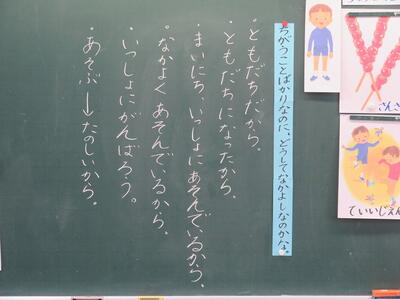 ちがうことばかりなのに、どうしてなかよしなのかな。
・ともだちだから。
・ともだちになったから。
・まいにち、いっしょにあそんでいるから、
・なかよくあそんでいるから。
・いっしょにがんばろう。
・あそぶ→たのしいから。
さんざ
ていいじえん